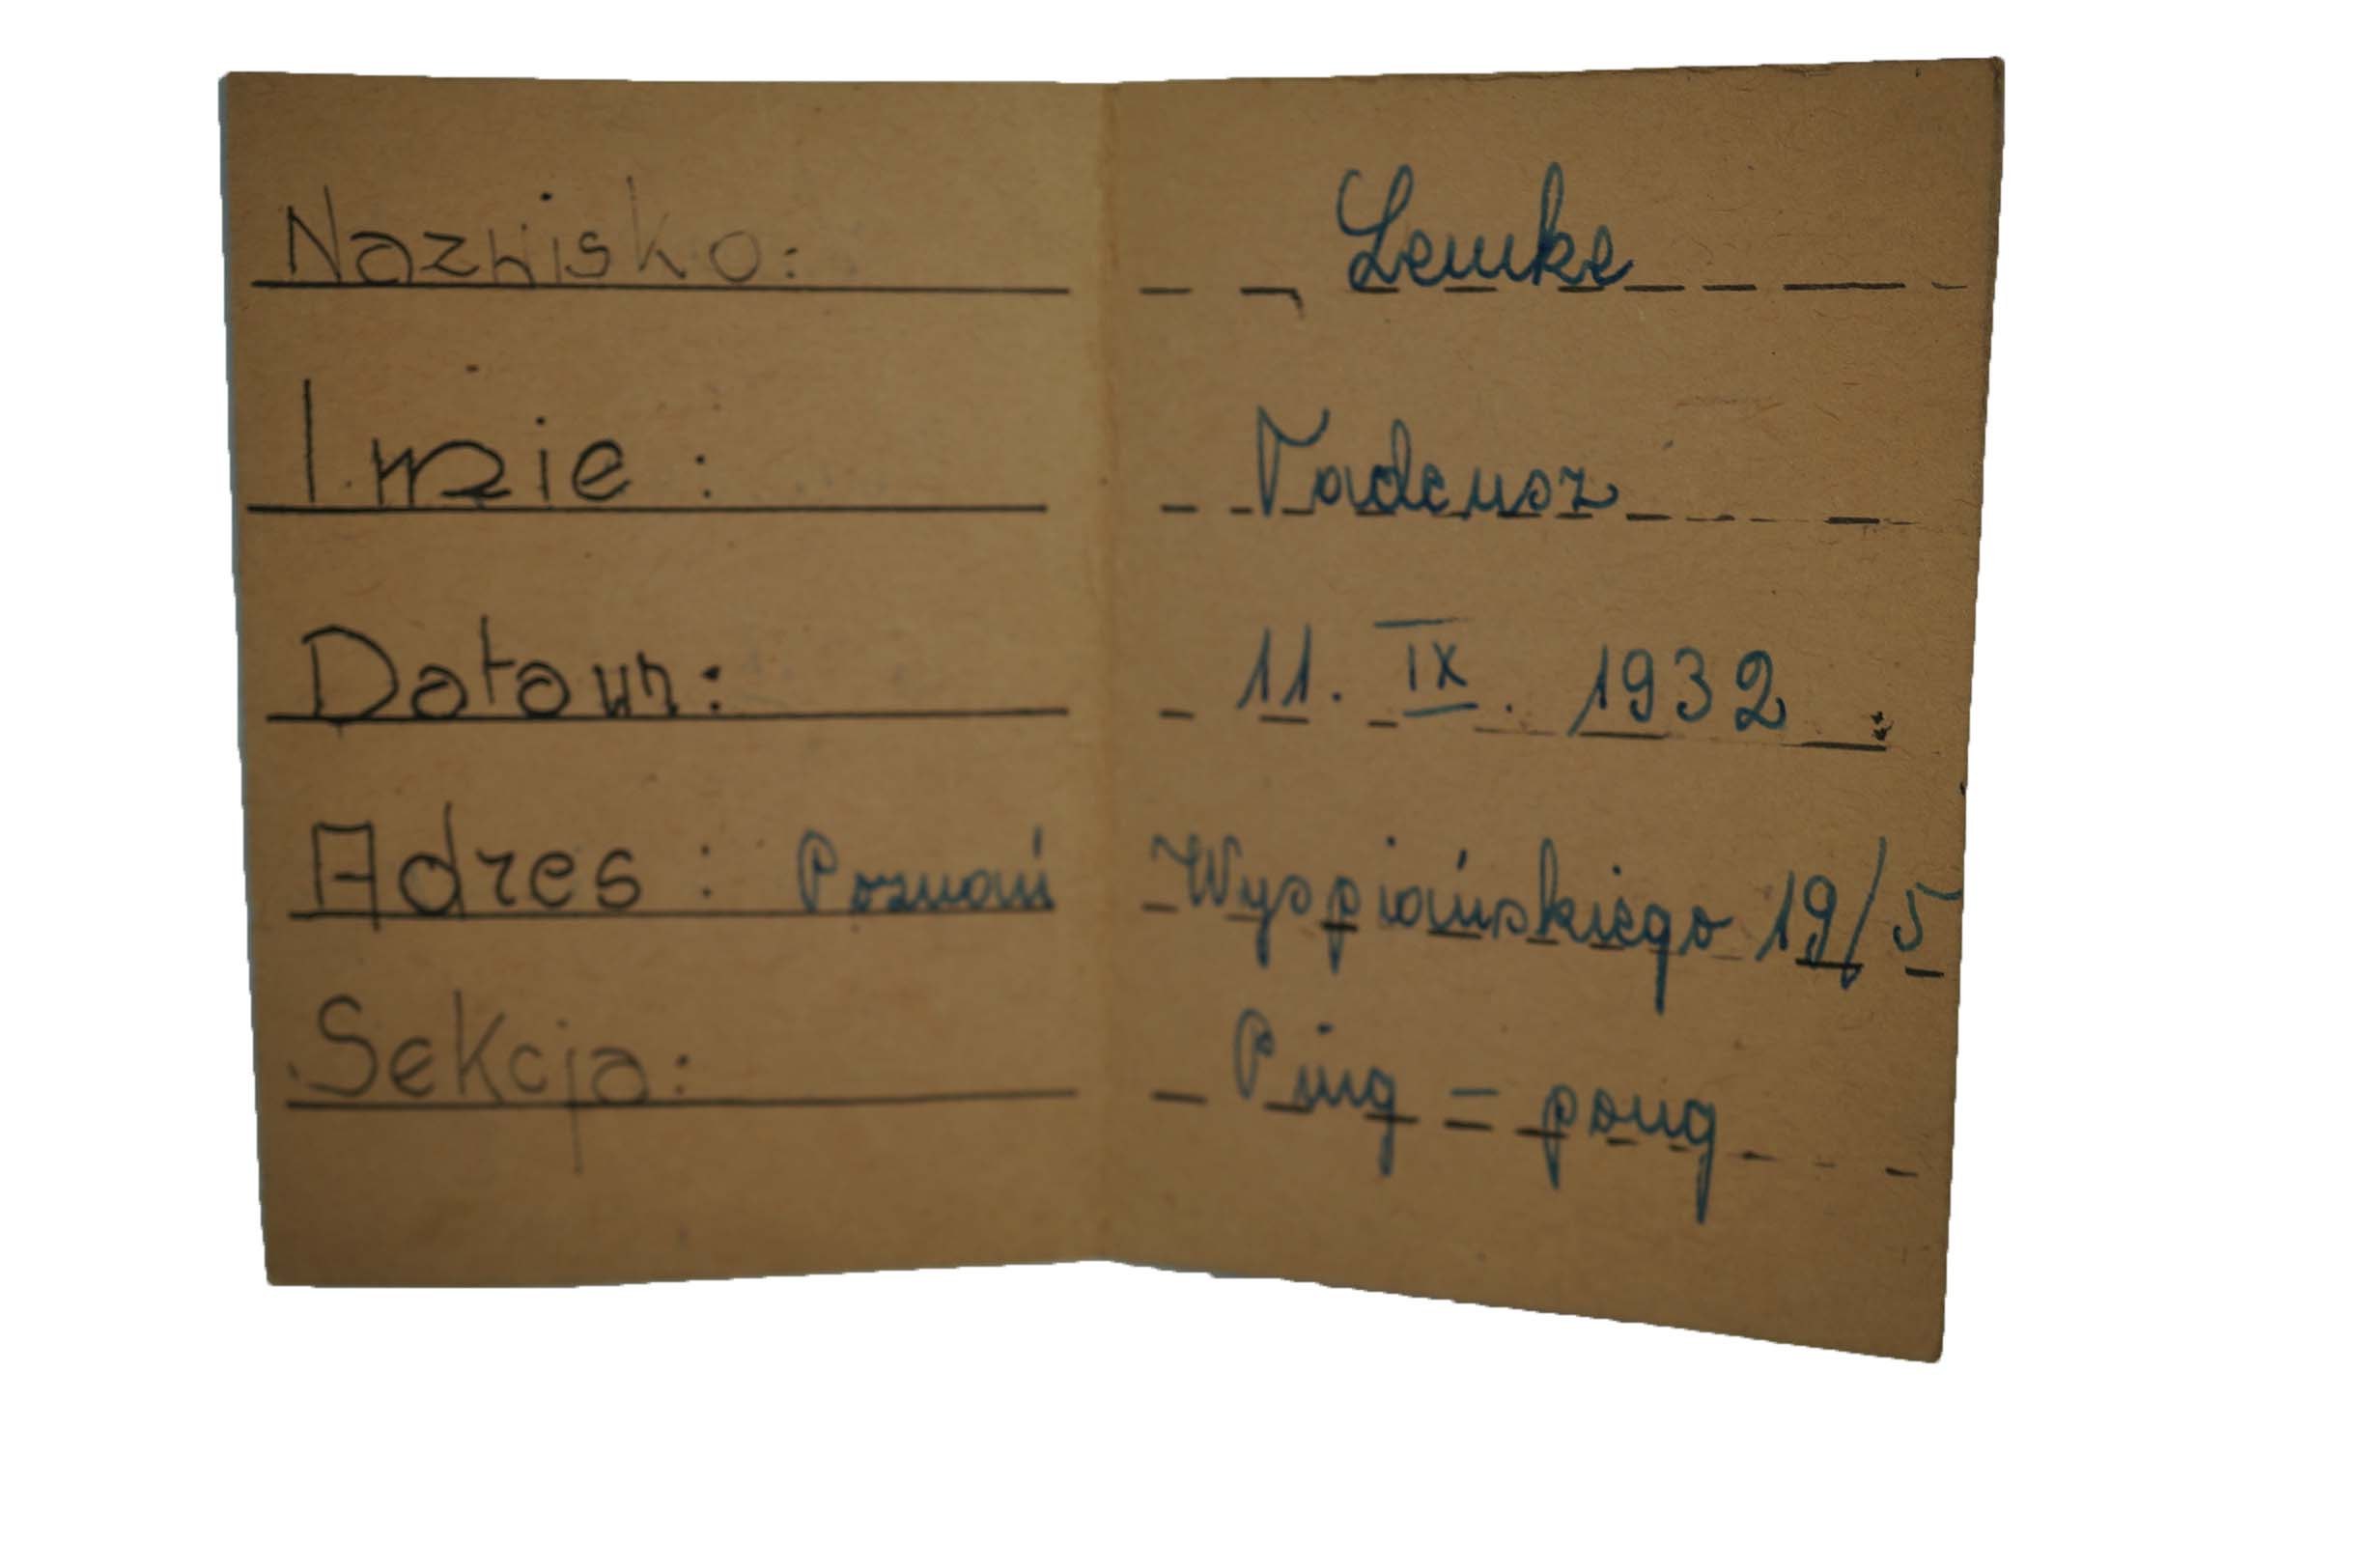 Nazwisko: Lemke
Imie: Tadeusz
Data ur: 11. IX. 1932
Adres: Poznań Wyspiańskiego 19/5
Sekcja: Ping = pong